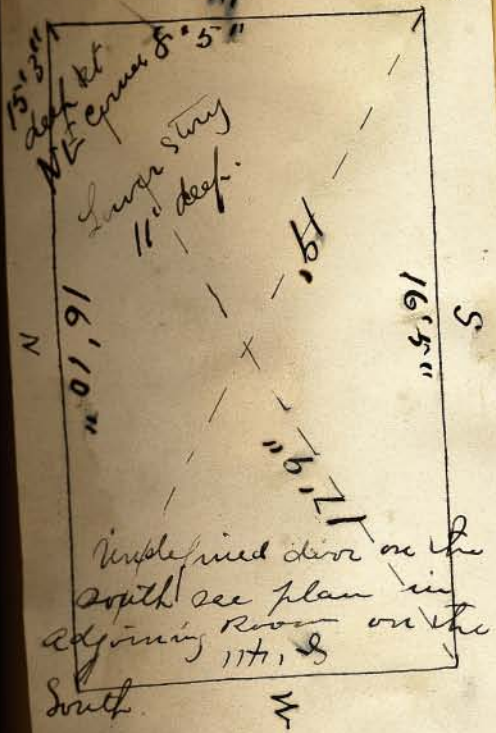 15'3"
deep at
NE Corner 8' 5"
Lower story
11' deep.
19'
N
16'10"
16'5"
S
17'9"
Undefined door on the
south see plan in
adjoining Room on the
South.
W